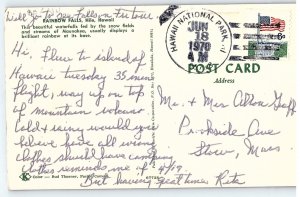 Will go to see Falls in picture
RAINBOW FALLS, Hilo, Hawaii
This beautiful waterfalls fed by the snow fields
and streams of Maunakea, usually displays a
brilliant rainbow at its base.
Hi. Flew to island of
Hawaii tuesday 35 min
flight, way up on top
of mountain volcano
cold & rainy would you
believe have all wrong
clothes should have camping
clothes reminds me of 4/49
But having great time Rita
HAWAII NATIONAL PARK
JUN
18
1970
AM
6c
POST CARD
Address
Mr. & Mrs Alton
Parkside Ave
Stow, Mass.
Color by Bud Thorner